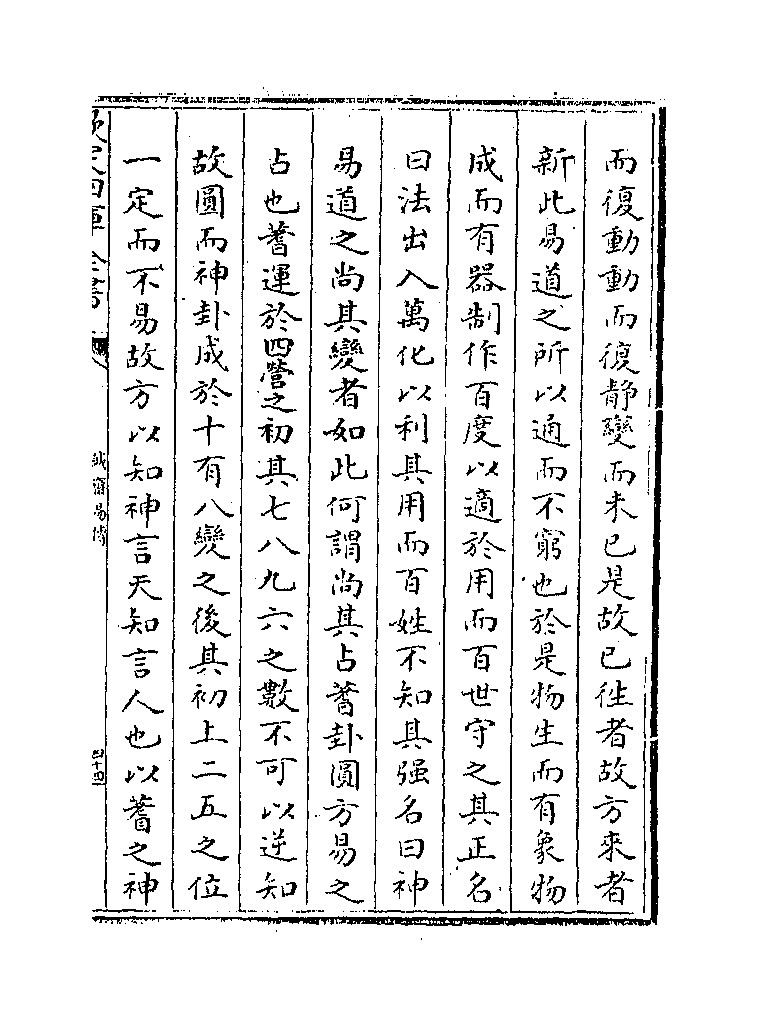 而復動動而復静變而未已是故已徃者故方來者
新此易道之所以通而不窮也於是物生而有象物
成而有器制作百度以適於用而百世守之其正名
曰法出入萬化以利其用而百姓不知其强名曰神
易道之尚其變者如此何謂尚其占蓍卦圓方易之
占也蓍運於四營之初其七八九六之數不可以逆知
故圓而神卦成於十有八變之後其初上二五之位
一定而不易故方以知神言天知言人也以蓍之神
欽定四庫全書
誠齋易傳
四十四